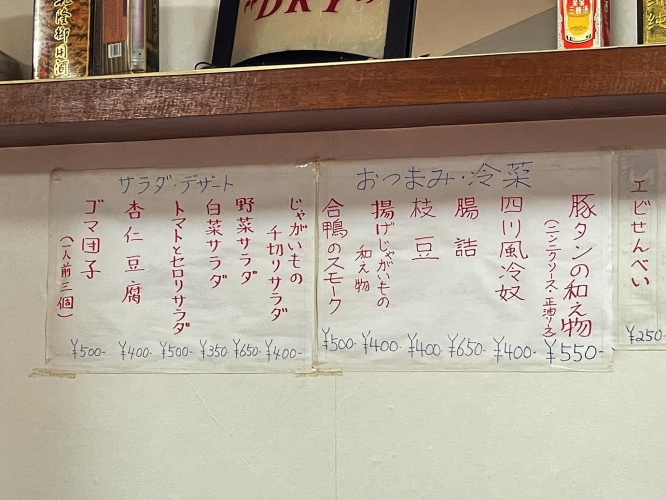 乾隆御用酒
"DRY"
エビせんべい
¥250
おつまみ・冷菜
豚タンの和え物
(ニンニクソース・正油ソース)
¥550-
四川風冷奴
¥400-
腸詰
¥650-
枝豆
¥400-
揚げじゃがいもの
和え物
¥400-
合鴨のスモーク
¥500-
サラダ・デザート
じゃがいもの
千切りサラダ
¥400-
野菜サラダ
¥650-
白菜サラダ
¥350-
トマトとセロリサラダ
¥500-
杏仁豆腐
¥400-
ゴマ団子
(一人前三個)
¥500-